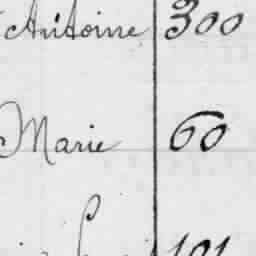 Antoine 300
Marie 60
101